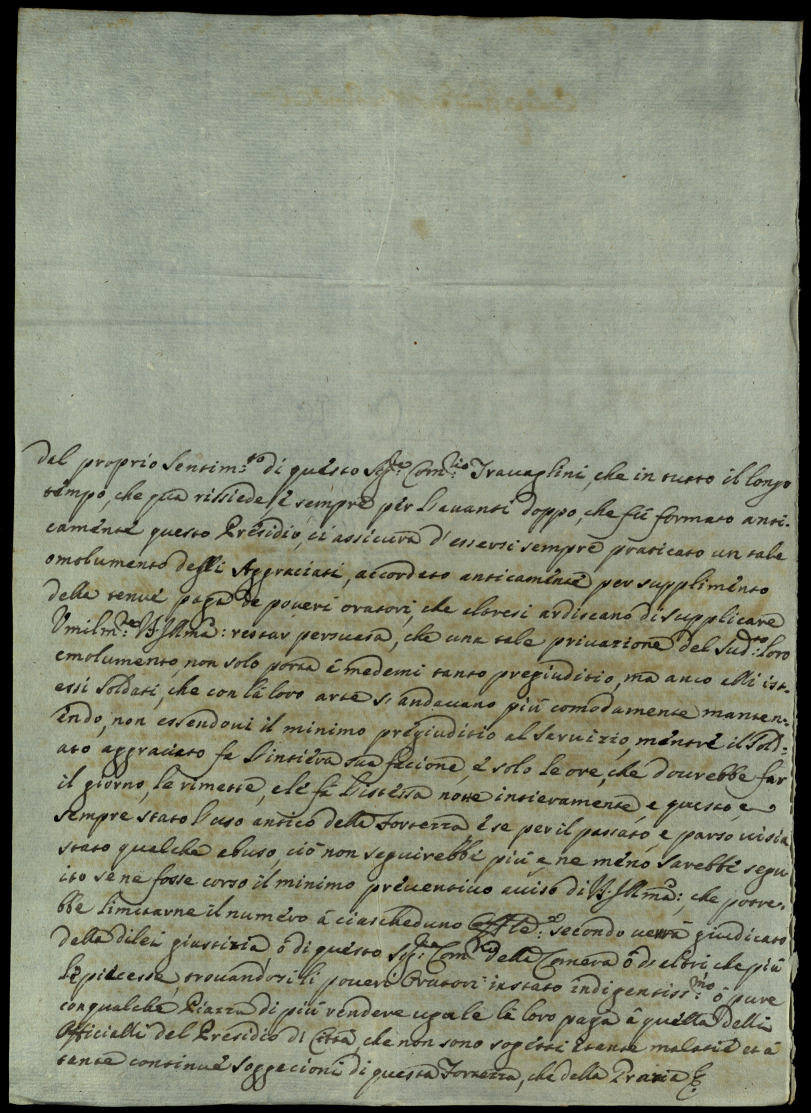 dal proprio sentim:to di questo Sig:re Com:rio Travaglini, che in tutto il longo
tempo, che qua rissiede, è sempre per l'avanti doppo, che fù formato anti-
camente questo Presidio, ci assicura d'essersi sempre praticato un tale
omolumento degli Aggraciati, accordato anticamente per supplimento
della tenue paga de poveri oratori, che altresi ardiscano di supplicare
Umilm:te V:S: Illma: restar persuasa, che una tale privazione del sud:to loro
emolumento, non solo porta è medemi tanto pregiuditio, ma anco alli ist-
essi soldati, che con la loro arte s'andavano più comodamente manten-
endo, non essendovi il minimo pregiuditio al servizio, mentre il sold-
ato aggraciato fa l'intiera sua facione, è solo le ore, che dovrebbe far
il giorno, le rimette, ele fa l'istessa notte intieramente, e questo, e
sempre stato l'uso antico della Fortezza è se per il passato, e parso visia
stato qualche abuso, ciò non seguirebbe più, e ne meno sarebbe segu-
ito se ne fosse corso il minimo preventivo aviso di V:S: Illma:, che potre-
bbe limitarne il numero à ciascheduno secondo verrà giudicato
della dilei giustizia ò di questo Sig: Com:rio della Camera ò d'altri, che più
le piacesse, trovandosi li poveri Oratori in stato indigentiss:mo ò pure
con qualche Piazza di più rendere uguale la loro paga à quella delli
Officialli del Presidio di Città, che non sono sogetti à tante malatie et à
tante continue soggecioni di questa Fortezza, che della Grazia &: